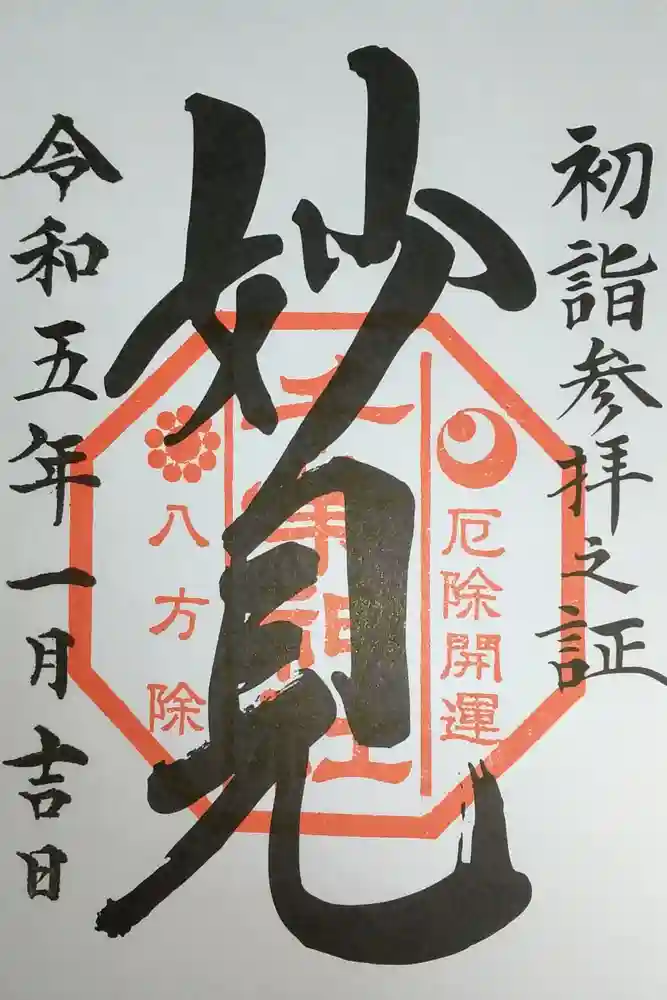 初詣参拝之証
妙見
厄除開運
神社
八方除
令和五年一月吉日